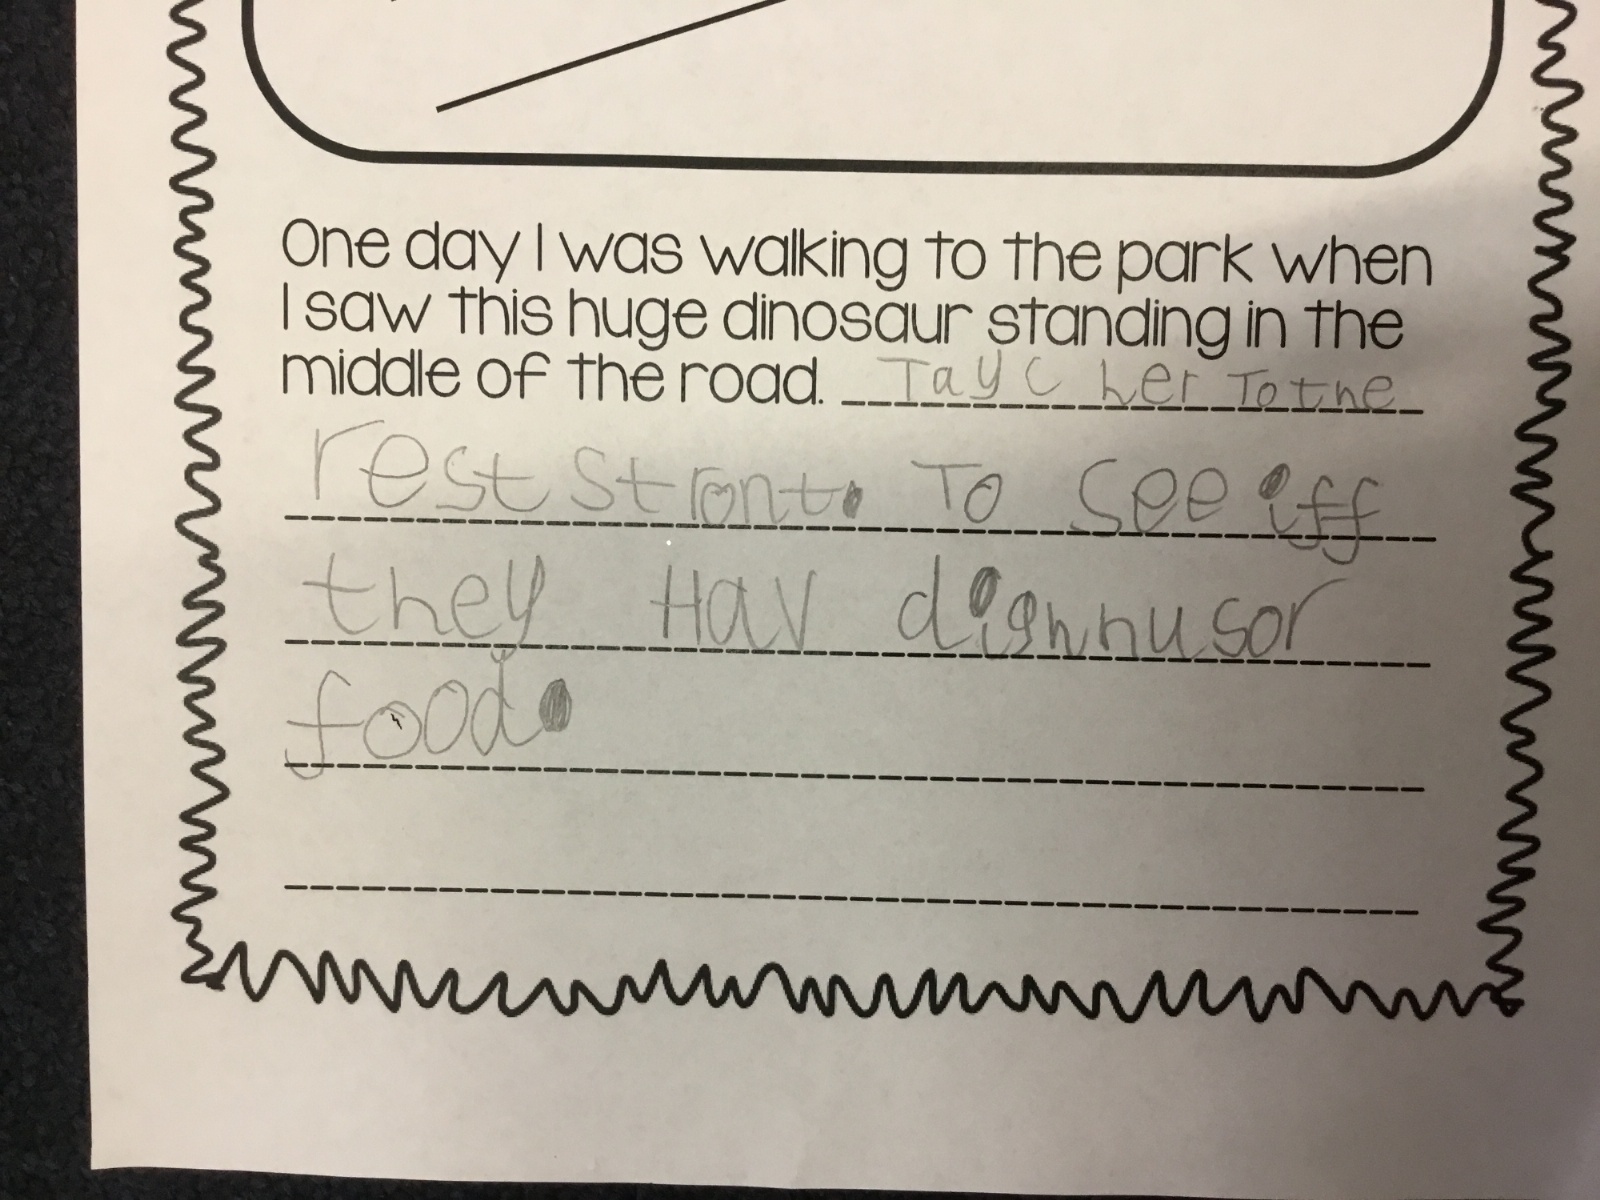 One day I was walking to the park when
I saw this huge dinosaur standing in the
middle of the road. Tayc her To the
rest stront. To see iff
they Hav dignnusor
food.